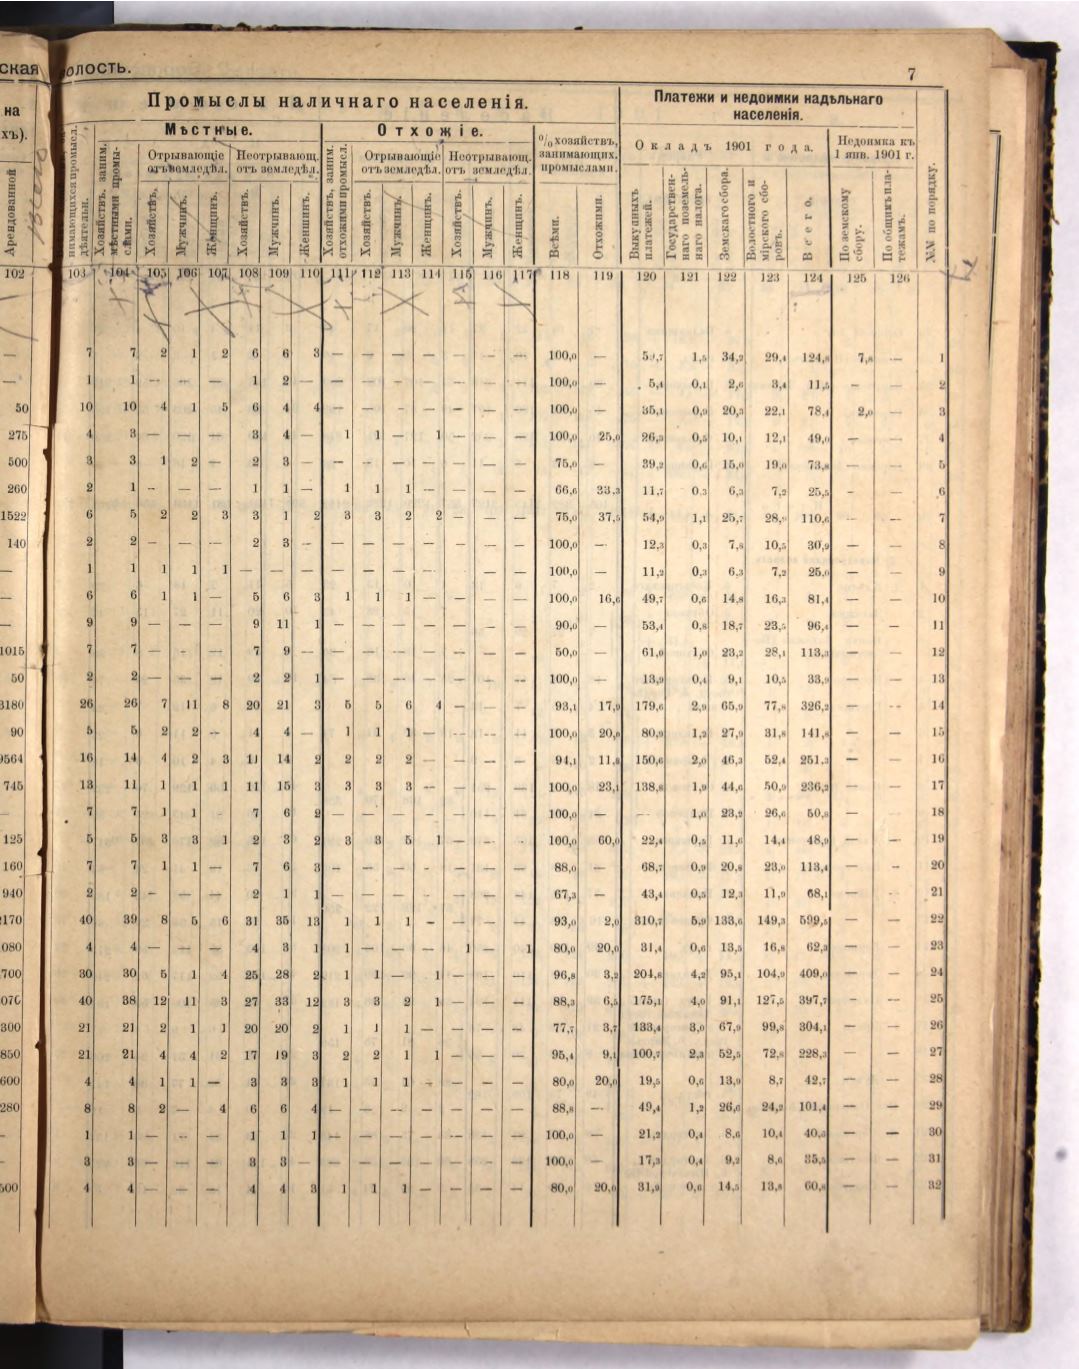 ская волость.
7
Промыслы наличнаго населенія.
Платежи и недоимки надѣльнаго
населенія.
на
хъ).
Арендованной
Мѣстные.
Отхожіе.
% хозяйствъ,
занимающих.
промыслами.
Окладъ 1901 года.
Недоимка къ
1 янв. 1901 г.
Отрывающіе
отъ земледѣл.
Неотрывающ.
отъ земледѣл.
Отрывающіе
отъ земледѣл.
Неотрывающ.
отъ земледѣл.
Хозяйствъ, заним.
мѣстными промы-
слами.
Хозяйствъ.
Мужчинъ.
Женщинъ.
Хозяйствъ.
Мужчинъ.
Женщинъ.
Хозяйствъ, заним.
отхожими промысл.
Хозяйствъ.
Мужчинъ.
Женщинъ.
Хозяйствъ.
Мужчинъ.
Женщинъ.
Всѣми.
Отхожими.
Выкупныхъ
платежей.
Государствен-
наго поземель-
наго налога.
Земскаго сбора.
Волостного и
мірского сбо-
ровъ.
Всего.
По земскому
сбору.
По общимъ пла-
тежамъ.
№№ по порядку.
102 103 104 105 106 107 108 109 110 111 112 113 114 115 116 117 118 119 120 121 122 123 124 125 126
— 7 7 2 1 2 6 6 3 — — — — — — — 100,0 — 1,5 34,2 29,4 124,8 7,8 — 1
— 1 1 — — — 1 2 — — — — — — — — 100,0 — 5,4 0,1 2,6 3,4 11,5 — — 2
50 10 10 4 1 5 6 4 4 — — — — — — — 100,0 — 35,1 0,9 20,3 22,1 78,4 2,0 — 3
275 4 3 — — — 3 4 — 1 1 — 1 — — — 100,0 25,0 26,3 0,5 10,1 12,1 49,0 — — 4
500 3 3 1 2 — 2 3 — — — — — — — — 75,0 — 39,2 0,6 15,0 19,0 73,8 — — 5
260 2 1 — — — 1 1 — 1 1 1 — — — — 66,6 33,3 11,7 0,3 6,3 7,2 25,5 — — 6
1522 6 5 2 2 3 3 1 2 3 3 2 2 — — — 75,0 37,5 54,9 1,1 25,7 28,9 110,6 — — 7
140 2 2 — — — 2 3 — — — — — — — — 100,0 — 12,3 0,3 7,8 10,5 30,9 — — 8
— 1 1 1 1 1 — — — — — — — — — — 100,0 — 11,2 0,3 6,3 7,2 25,0 — — 9
— 6 6 1 1 — 5 6 3 1 1 1 — — — — 100,0 16,6 49,7 0,6 14,8 16,3 81,4 — — 10
— 9 9 — — — 9 11 1 — — — — — — — 90,0 — 53,4 0,8 18,7 23,5 96,4 — — 11
1015 7 7 — — — 7 9 — — — — — — — — 50,0 — 61,0 1,0 23,2 28,1 113,3 — — 12
50 2 2 — — — 2 2 1 — — — — — — — 100,0 — 13,9 0,4 9,1 10,5 33,9 — — 13
3180 26 26 7 11 8 20 21 3 5 5 6 4 — — — 93,1 17,9 179,6 2,9 65,9 77,8 326,2 — — 14
90 5 5 2 2 — 4 4 — 1 1 1 — — — — 100,0 20,0 80,9 1,2 27,9 31,8 141,8 — — 15
9564 16 14 4 2 3 11 14 2 2 2 2 — — — — 94,1 11,8 150,6 2,0 46,3 52,4 251,3 — — 16
745 13 11 1 1 1 11 15 3 3 3 3 — — — — 100,0 23,1 138,8 1,9 44,6 50,9 236,2 — — 17
7 7 1 1 — 7 6 2 — — — — — — — 100,0 — — 1,0 23,2 26,6 50,8 — — 18
125 5 5 3 3 1 2 3 2 3 3 5 1 — — — 100,0 60,0 22,4 0,5 11,6 14,4 48,9 — — 19
160 7 7 1 1 — 7 6 3 — — — — — — — 88,0 — 68,7 0,9 20,8 23,0 113,4 — — 20
940 2 2 — — — 2 1 1 — — — — — — — 67,3 — 43,4 0,5 12,3 11,9 68,1 — — 21
2170 40 39 8 5 6 31 35 13 1 1 1 — — — — 93,0 2,0 310,7 5,9 133,6 149,3 599,5 — — 22
080 4 4 — — — 4 3 1 1 — — — 1 — 1 80,0 20,0 31,4 0,6 13,5 16,8 62,3 — — 23
700 30 30 5 1 4 25 28 2 1 1 — 1 — — — 96,8 3,2 204,8 4,2 95,1 104,9 409,0 — — 24
070 40 38 12 11 3 27 33 12 3 3 2 1 — — — 88,3 6,5 175,1 4,0 91,1 127,5 397,7 — — 25
300 21 21 2 1 1 20 20 2 1 1 1 — — — — 77,7 3,7 133,4 3,0 67,9 99,8 304,1 — — 26
850 21 21 4 4 2 17 19 3 2 2 1 1 — — — 95,4 9,1 100,7 2,3 52,5 72,8 228,3 — — 27
600 4 4 1 1 — 3 3 3 1 1 1 — — — — 80,0 20,0 19,5 0,6 13,9 8,7 42,7 — — 28
280 8 8 2 — 4 6 6 4 — — — — — — — 88,8 — 49,4 1,2 26,6 24,2 101,4 — — 29
— 1 1 — — — 1 1 1 — — — — — — — 100,0 — 21,2 0,4 8,6 10,4 40,3 — — 30
— 3 3 — — — 3 3 — — — — — — — — 100,0 — 17,3 0,4 9,2 8,6 35,5 — — 31
500 4 4 — — — 4 4 3 1 1 1 — — — — 80,0 20,0 31,9 0,6 14,5 13,8 60,8 — — 32